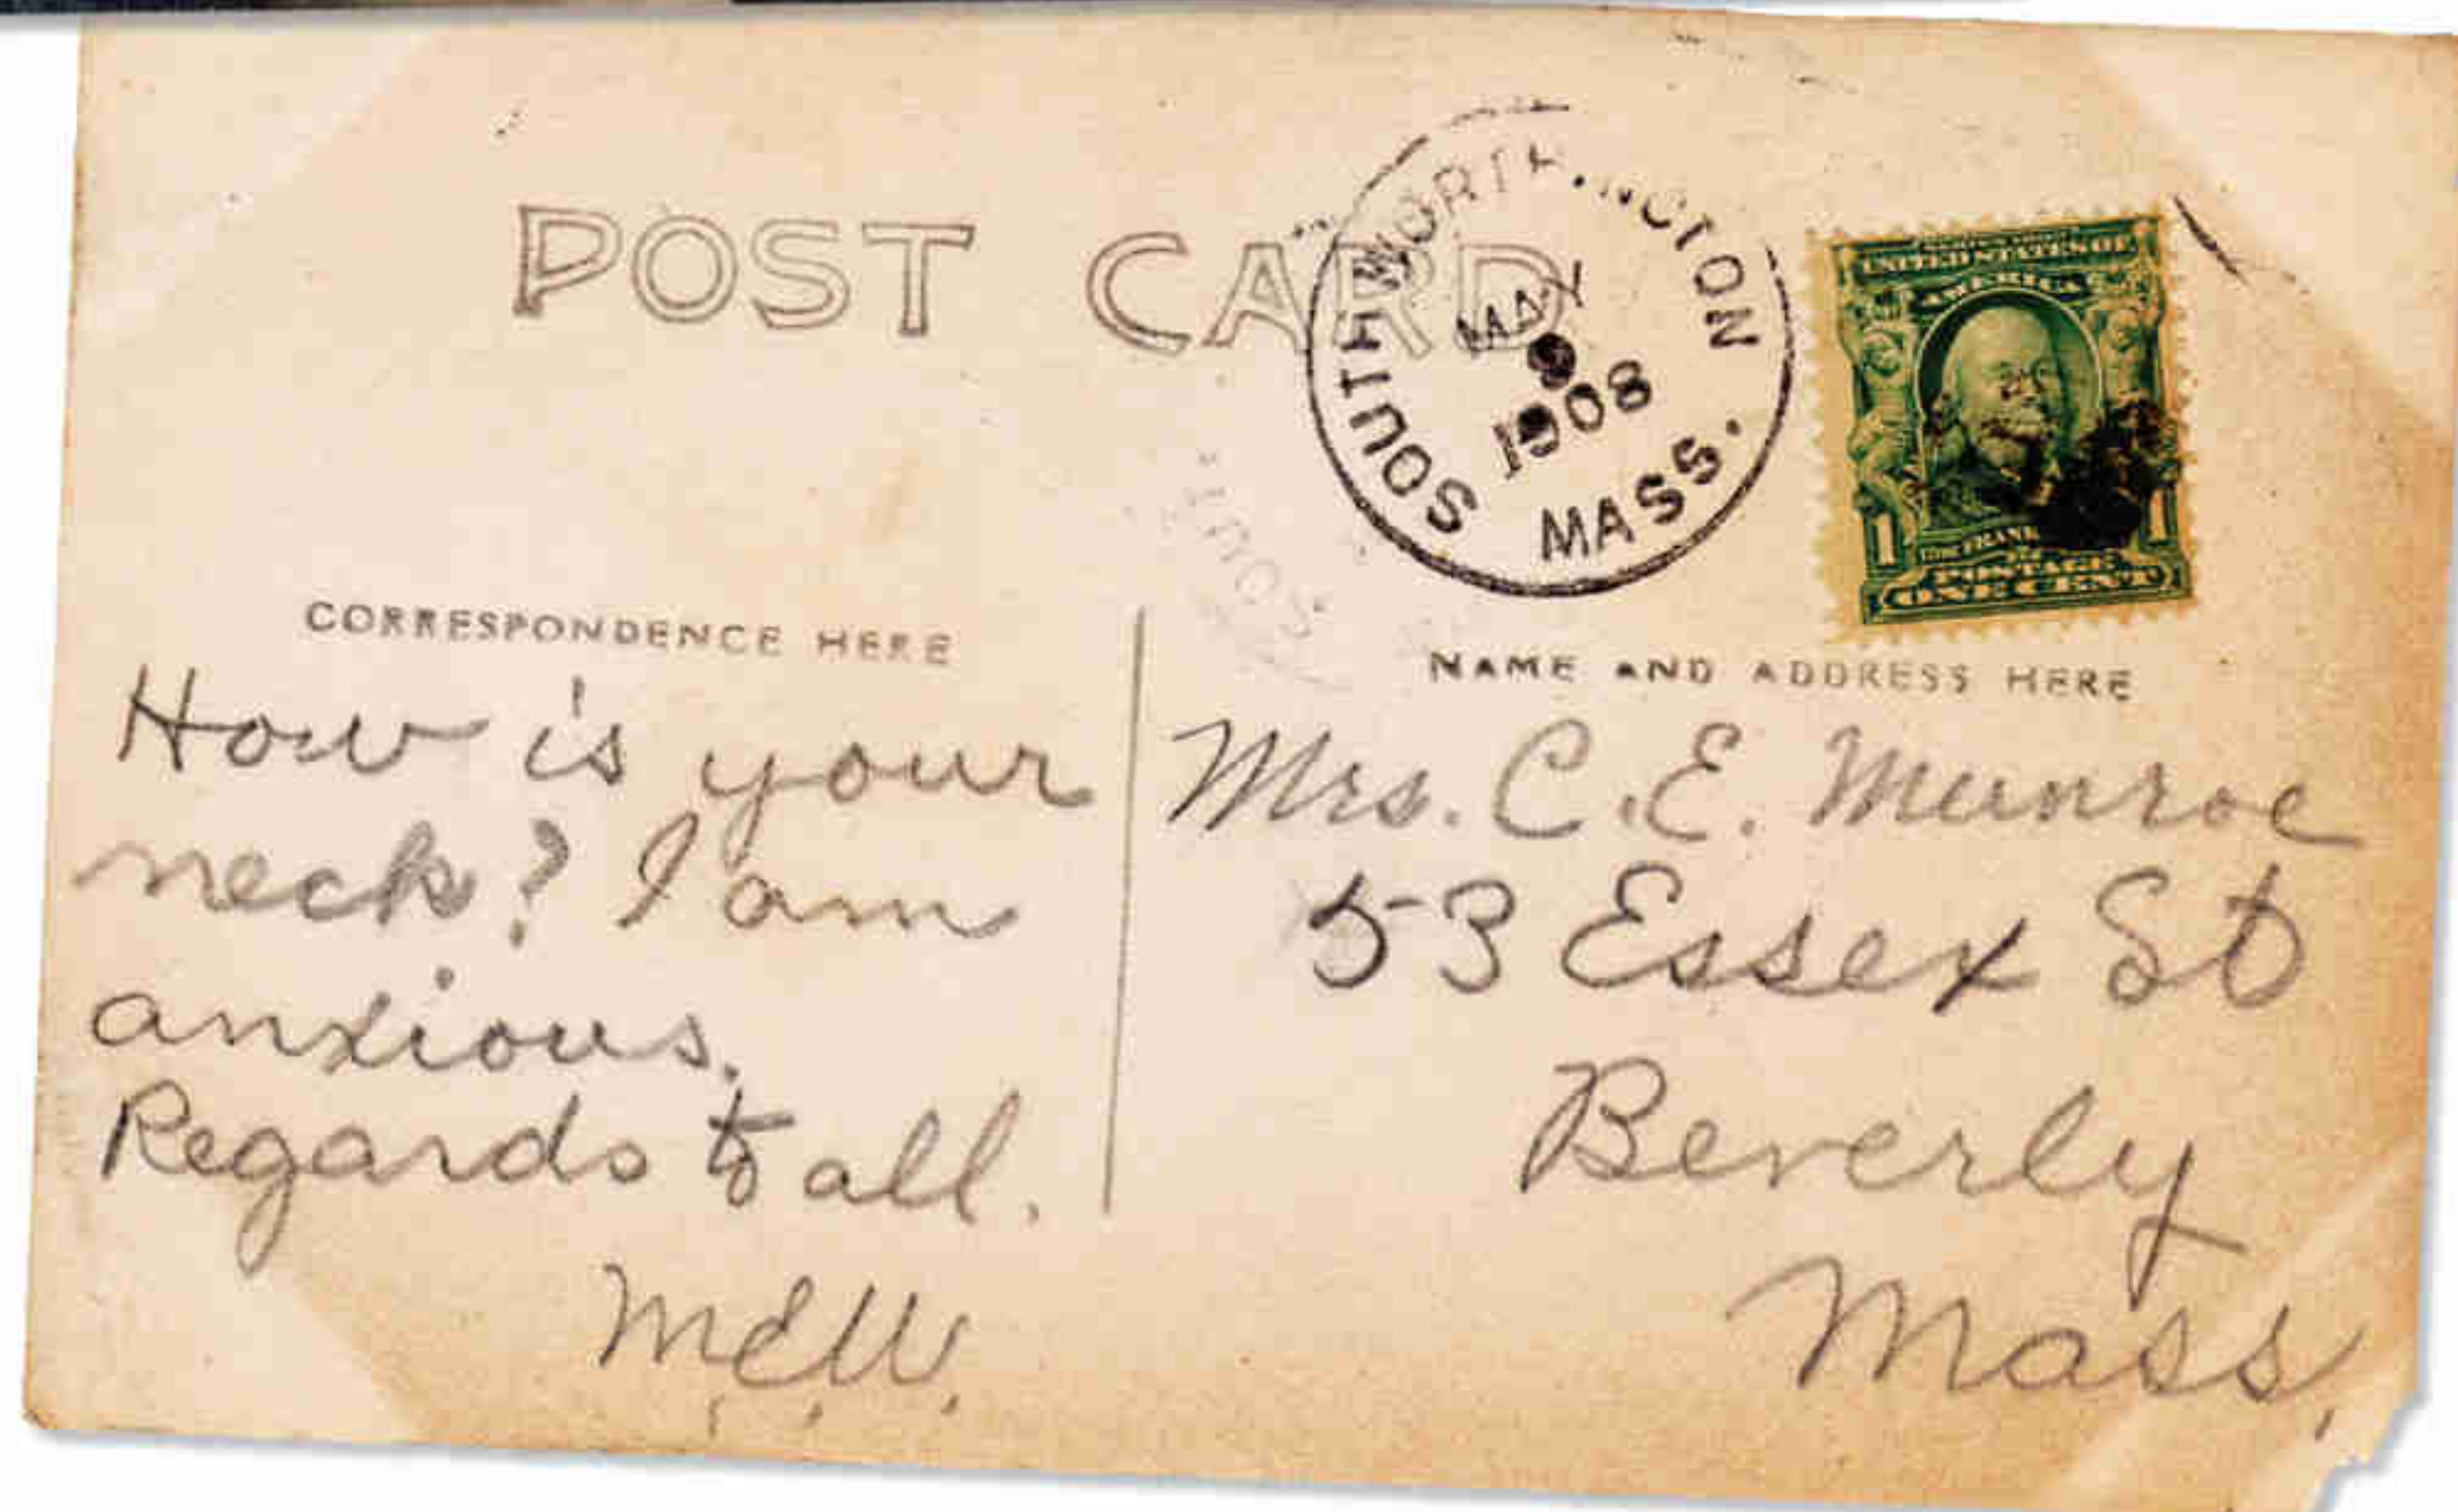 POST CARD
SOUTH WORTHINGTON
MAY
9
1908
MASS.
UNITED STATES OF
AMERICA
1 1
POSTAGE
ONE CENT
SOUT
CORRESPONDENCE HERE
How is your
neck? I am
anxious.
Regards to all.
M.E.W.
NAME AND ADDRESS HERE
Mrs. C. E. Munroe
53 Essex St
Beverly
Mass.